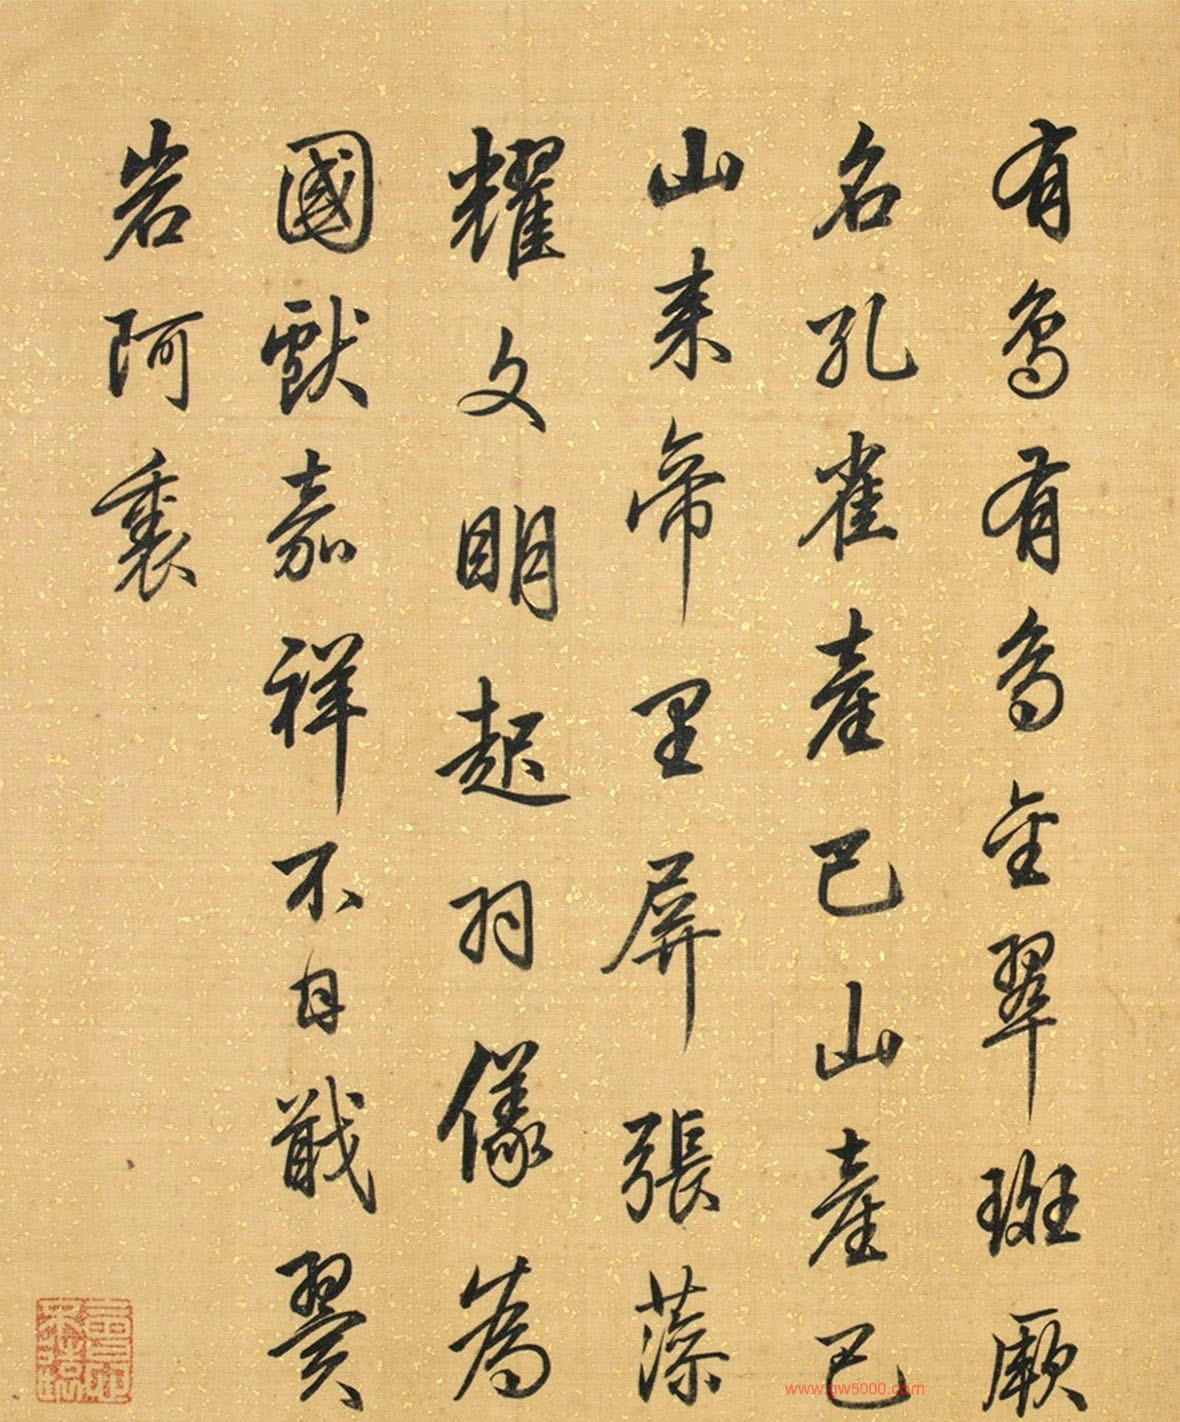 有鳥有鳥金翠斑厥
名孔雀產巴山產巴
山来帝里屏張藻
耀文明起羽儀為
國獻嘉祥不自戢翼
岩阿裏
www.gw5000.com